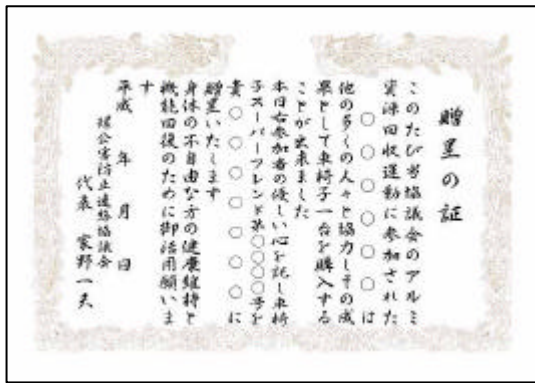 贈呈の証
このたび当協議会のアルミ
資源回収運動に参加された
○○○○○○は
他の多くの人々と協力しその成
果として車椅子一台を購入する
ことが出来ました
本日右参加者の優しい心を託し車椅
子スーパーフレンド第○○○○号を
貴○○○○○○に
贈呈いたします
身体の不自由な方の健康維持と
機能回復のために御活用願いま
す
平成 年 月 日
環公害防止連絡協議会
代表 家野一夫